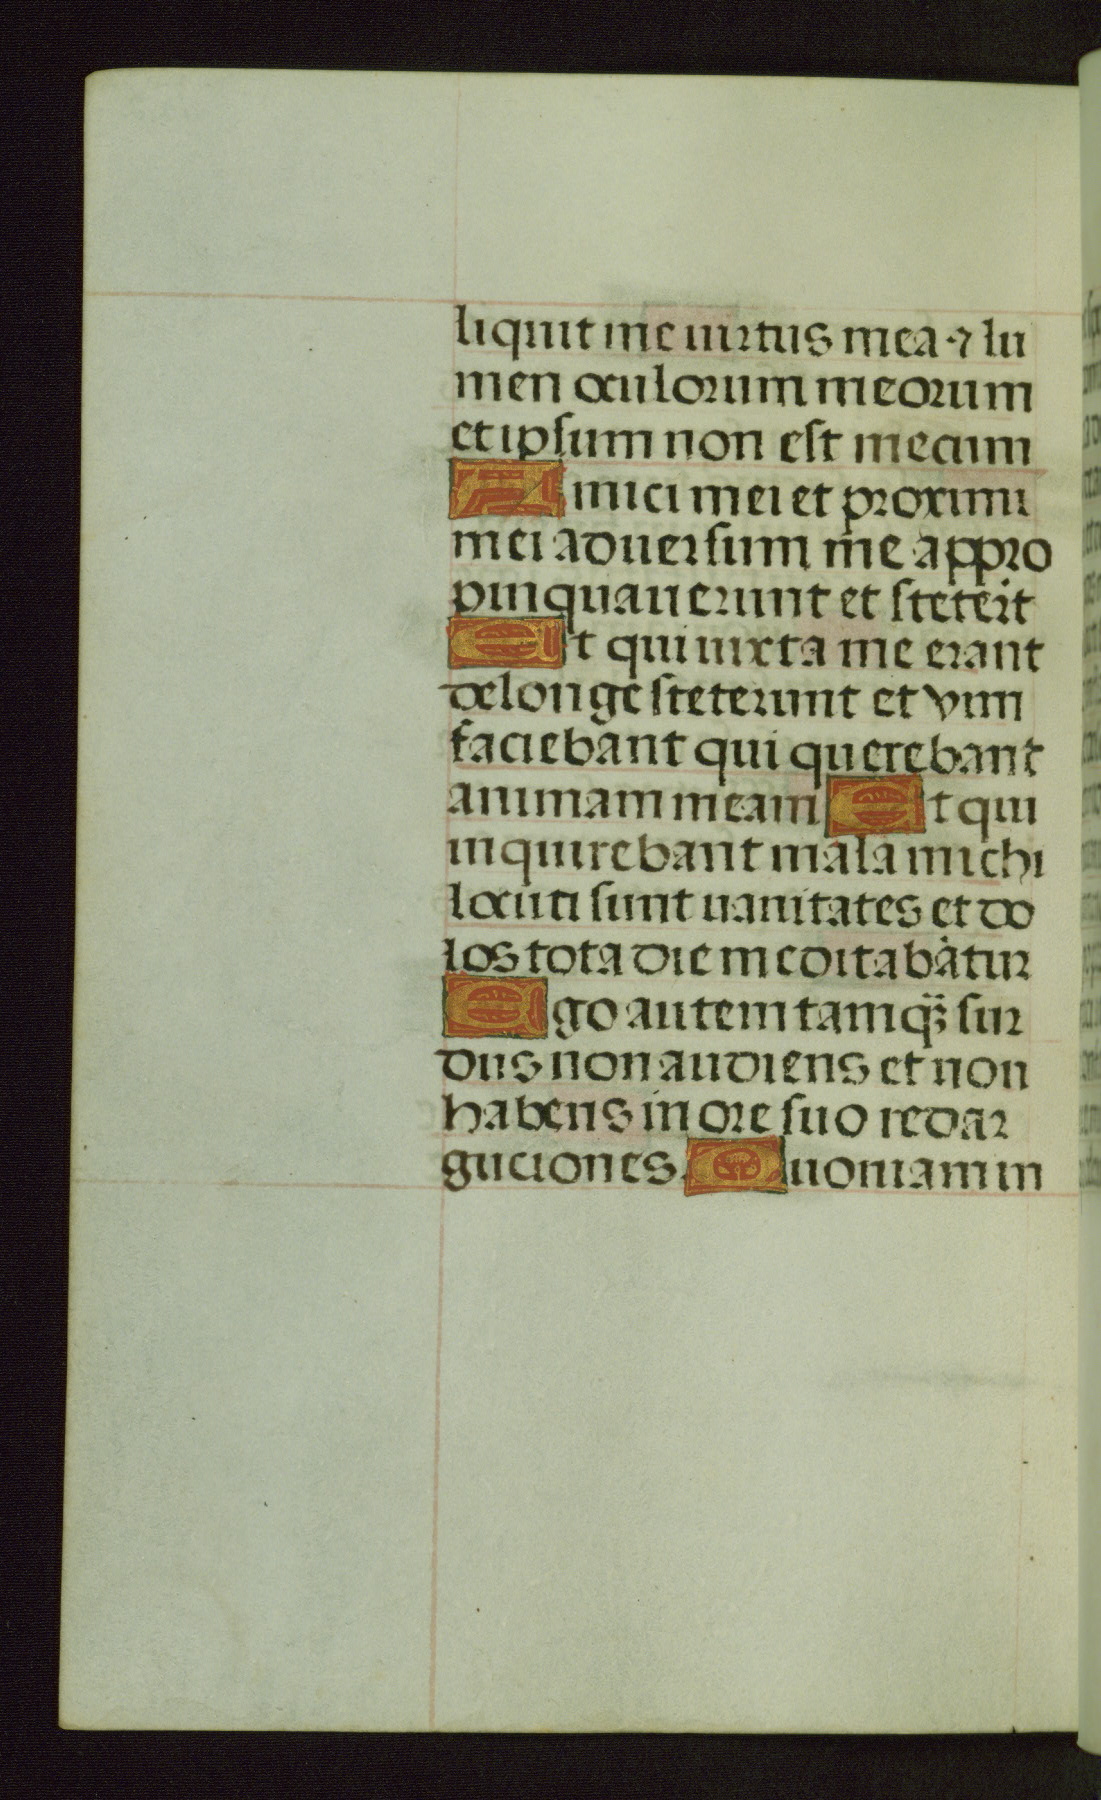 liquit me uirtus mea ⁊ lu
men oculorum meorum
et ipsum non est mecum
Amici mei et proximi
mei aduersum me appro
pinquauerunt et steterūt
Et qui iuxta me erant
de longe steterunt et vim
faciebant qui querebant
animam meam Et qui
inquirebant mala michi
locuti sunt uanitates et do
los tota die meditabātur
Ego autem tamqȝ sur
dus non audiens et non
habens in ore suo redar
guciones. Quoniam in